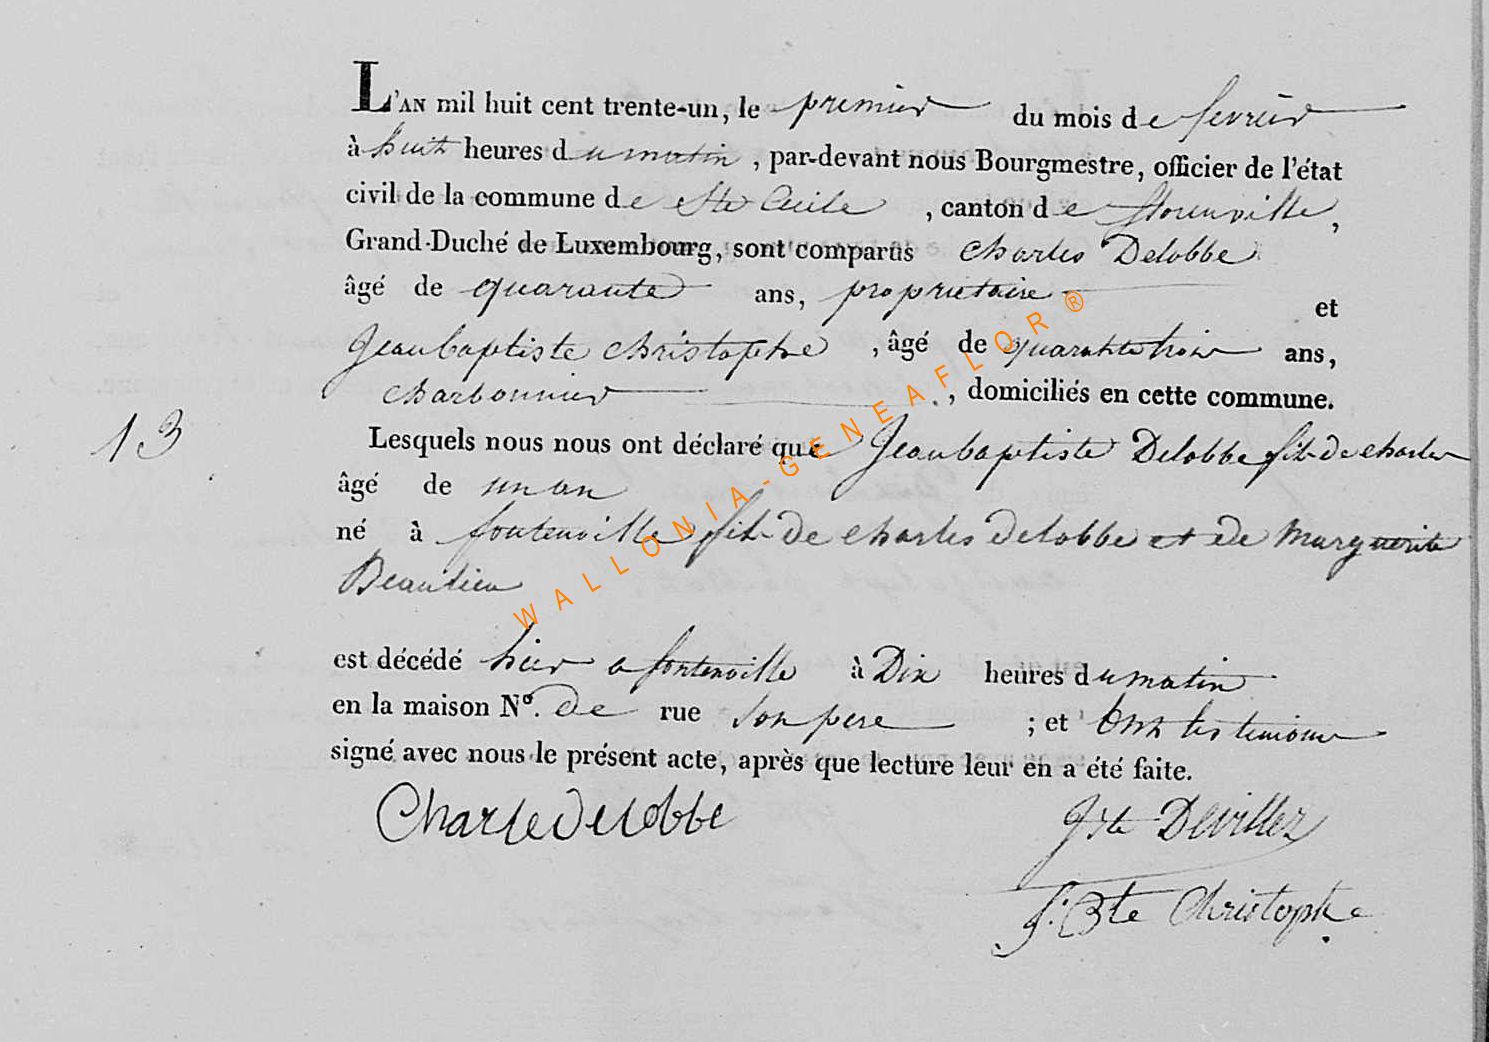 L'AN mil huit cent trente-un, le premier du mois de fevrier
à huit heures du matin, par-devant nous Bourgmestre, officier de l'état
civil de la commune de Ste Cecile, canton de florenville,
Grand-Duché de Luxembourg, sont comparus charles Delobbe
âgé de quarante ans, proprietaire et
Jeanbaptiste christophe, âgé de quarante trois ans,
charbonnier, domiciliés en cette commune.
13
Lesquels nous nous ont déclaré que Jeanbaptiste Delobbe fils de charles
âgé de un an
né à fontenoille fils de charles delobbe et de marguerite
Beaudieu
est décédé hier a fontenoille à Dix heures du matin
en la maison N°. de rue son pere ; et ont les temoins
signé avec nous le présent acte, après que lecture leur en a été faite.
Charle Delobbe
Jste Devillez
J: Bte Christophe
WALLONIA-GENEAFLOR®